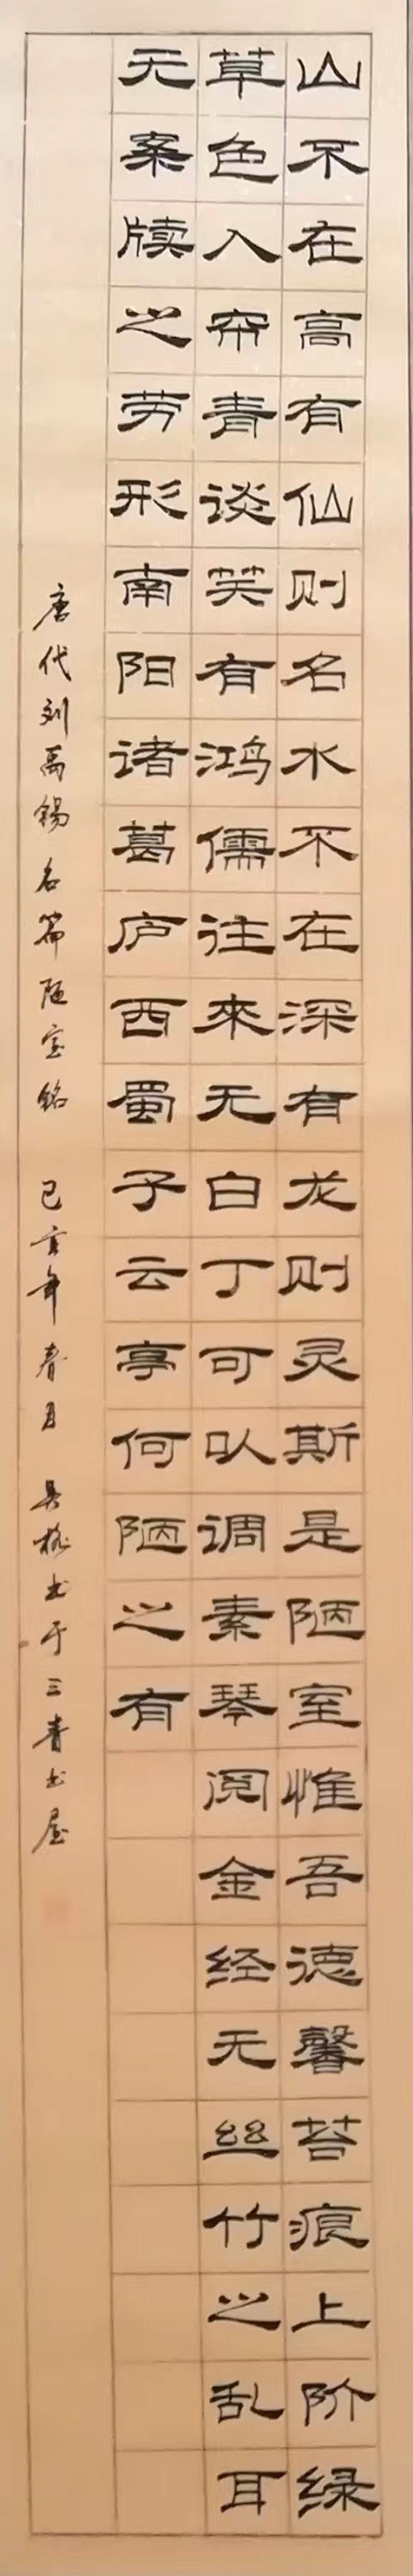 山不在高有仙则名水不在深有龙则灵斯是陋室惟吾德馨苔痕上阶绿
草色入帘青谈笑有鸿儒往来无白丁可以调素琴阅金经无丝竹之乱耳
无案牍之劳形南阳诸葛庐西蜀子云亭何陋之有
唐代刘禹锡名篇陋室铭 己亥年春月 吴 书于三青书屋